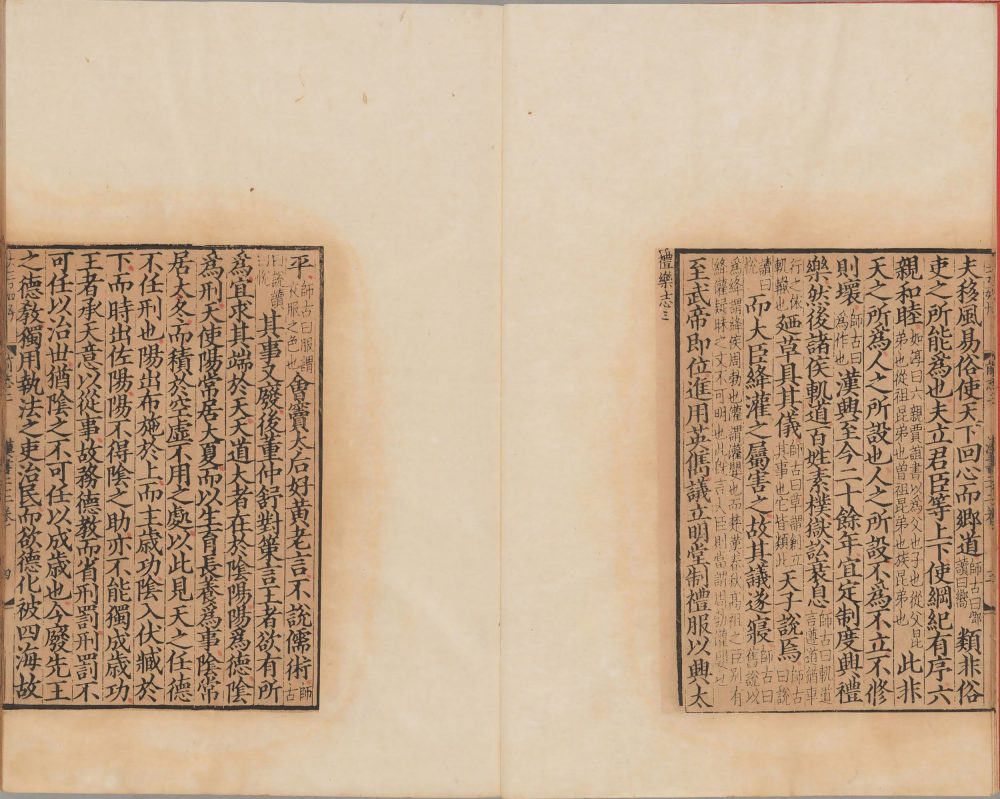 夫移風易俗使天下回心而鄉道師古曰鄉讀曰嚮類非俗
吏之所能為也夫立君臣等上下使綱紀有序六
親和睦如淳曰六親賈誼書以為父也子也從父昆弟也從祖昆弟也曾祖昆弟也族昆弟也此非
天之所為人之所設也人之所設不為不立不修
則壞師古曰為作也漢興至今二十餘年宜定制度興禮
樂然後諸侯軌道百姓素樸獄訟衰息師古曰軌道言遵道猶車
行之依軌轍也廼草具其儀師古曰草謂創立其事也它皆類此天子說焉師古曰說
讀曰悅而大臣絳灌之屬害之故其議遂寢師古曰舊說以
為絳謂絳侯周勃也灌謂灌嬰也而楚漢春秋高祖之臣別有絳灌疑昧之文不可明也此既言大臣則當謂周勃灌嬰也
至武帝即位進用英雋議立明堂制禮服以興太
禮樂志三
平師古曰服謂衣服之色也會竇太后好黃老言不說儒術師古
曰說讀曰悅其事又廢後董仲舒對策言王者欲有所
為宜求其端於天天道大者在於陰陽陽為德陰
為刑天使陽常居大夏而以生育長養為事陰常
居大冬而積於空虛不用之處以此見天之任德
不任刑也陽出布施於上而主歲功陰入伏臧於
下而時出佐陽陽不得陰之助亦不能獨成歲功
王者承天意以從事故務德教而省刑罰刑罰不
可任以治世猶陰之不可任以成歲也今廢先王
之德教獨用執法之吏治民而欲德化被四海故